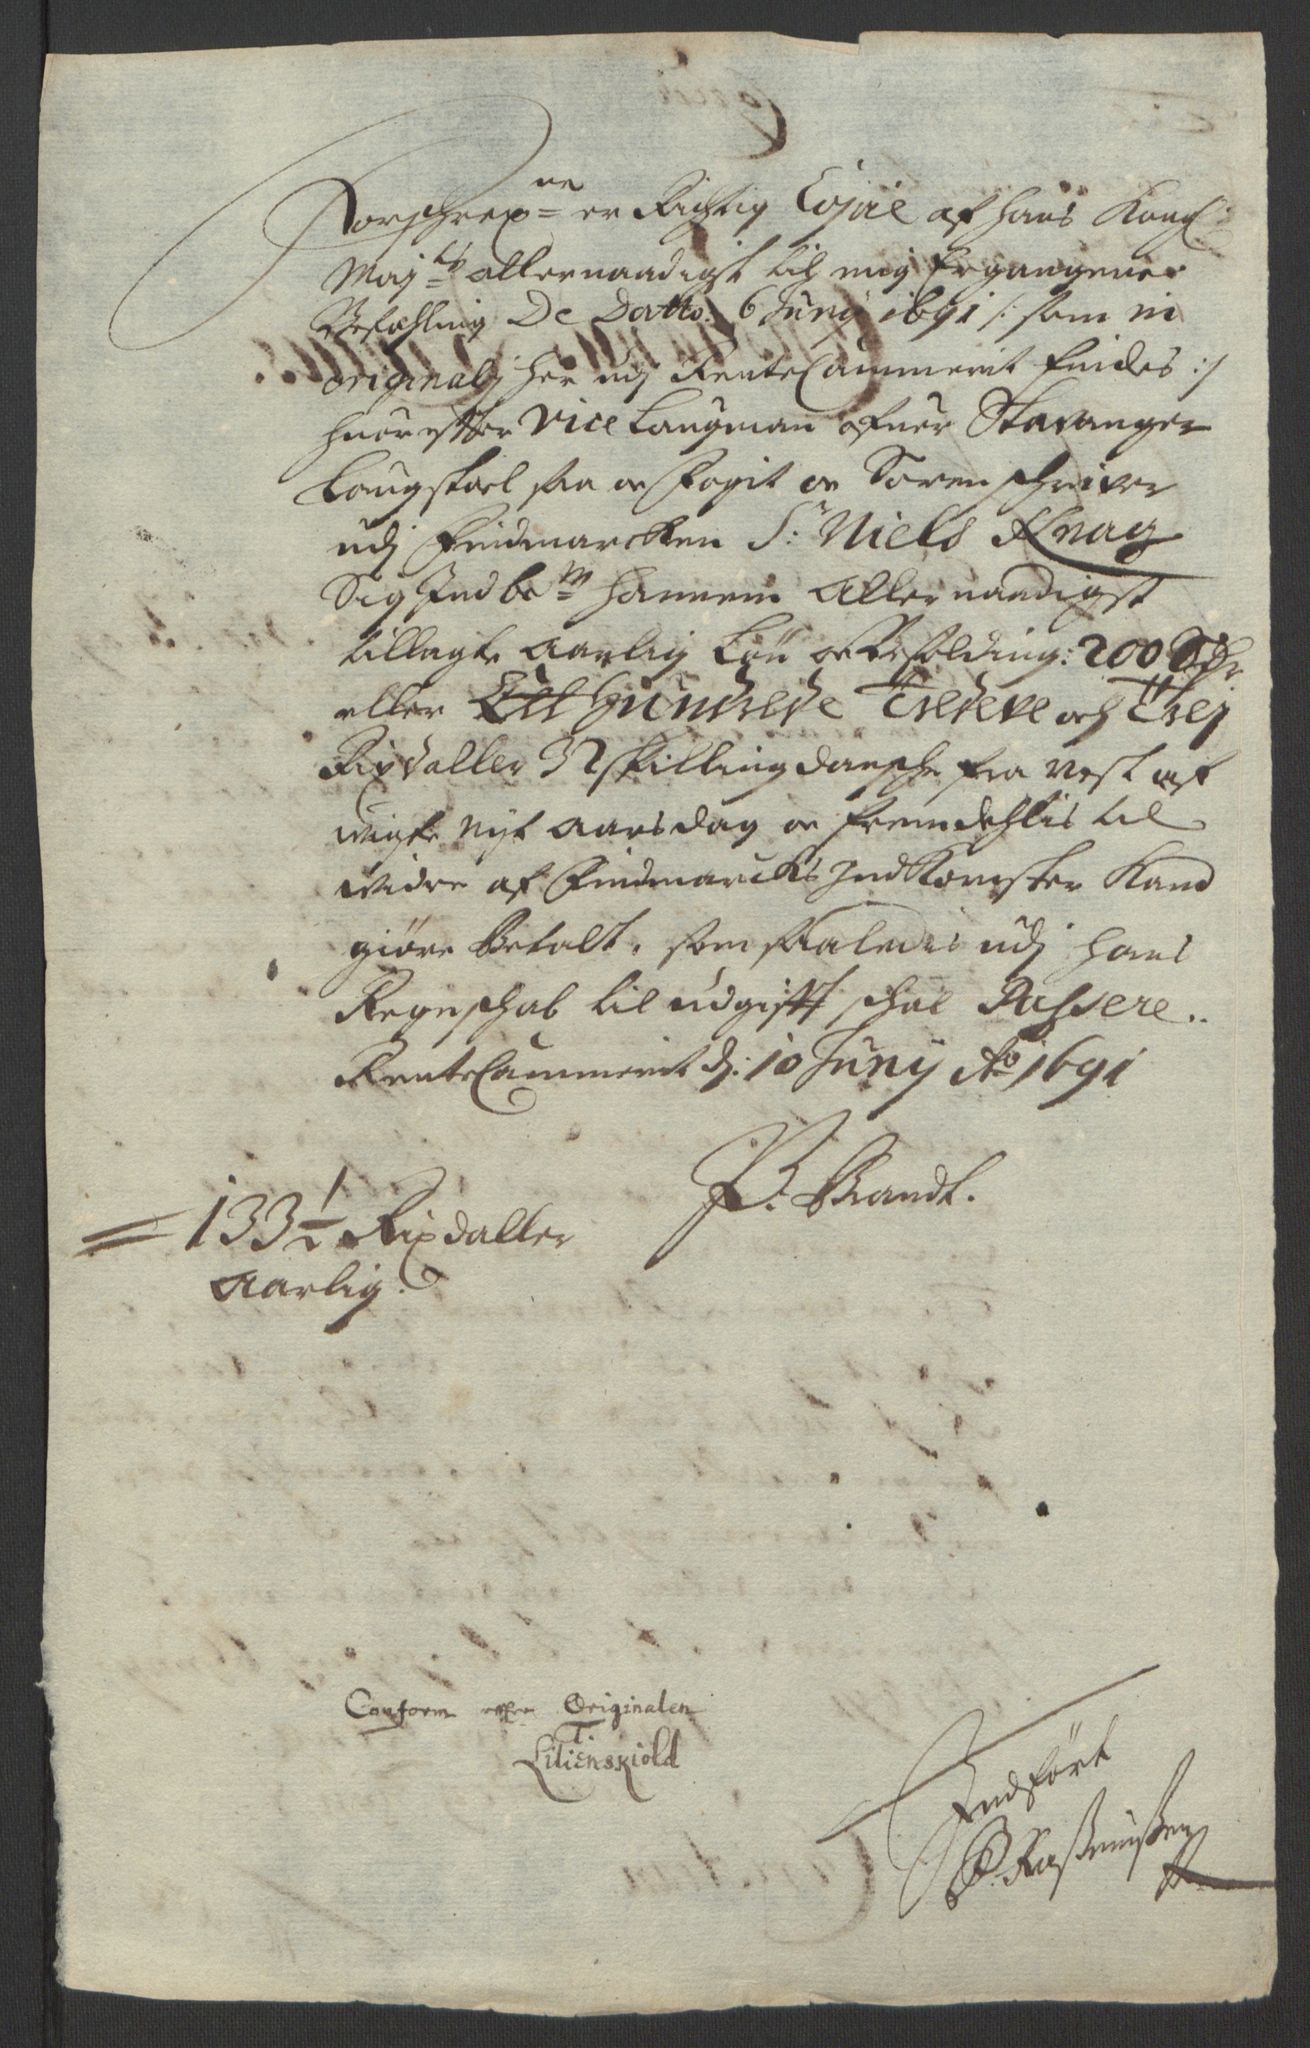 Forschrefne er Richtig Copie af hans Kongl:
Maj:ts allernaadigst til mig Ergangene
Befahling De Datto: 6 Juny 1691 /: som in
originali her udj RenteCammerit findes :/
huorefter Vice Laugman ofuer Stavanger
Laugstoel saa oc Fogit oc Sorenschriver
udj Findmarcken Sr: Niels Knag
Sig Indbe:m hannem Allernaadigst
tillagte Aarlig Løn oc Besolding: 200 Sdr
eller Ett Hundrede Tredeve och Trej
Rixdaller 32 skilling danche fra nest af
wigte Nyt Aarsdag oc fremdehlis til
widre af Findmarckens IndKomster Kand
giøre Betalt, som saaledis udj hans
Regnschab til udgifft schal Passere..
RenteCammerit d: 10 Juny Ao 1691
P: Brandt.
= 133 1/2 Rixdaller
Aarlig.
Conform efter Originalen
T.
Lilienskiold
Indført
P: Rasmussen